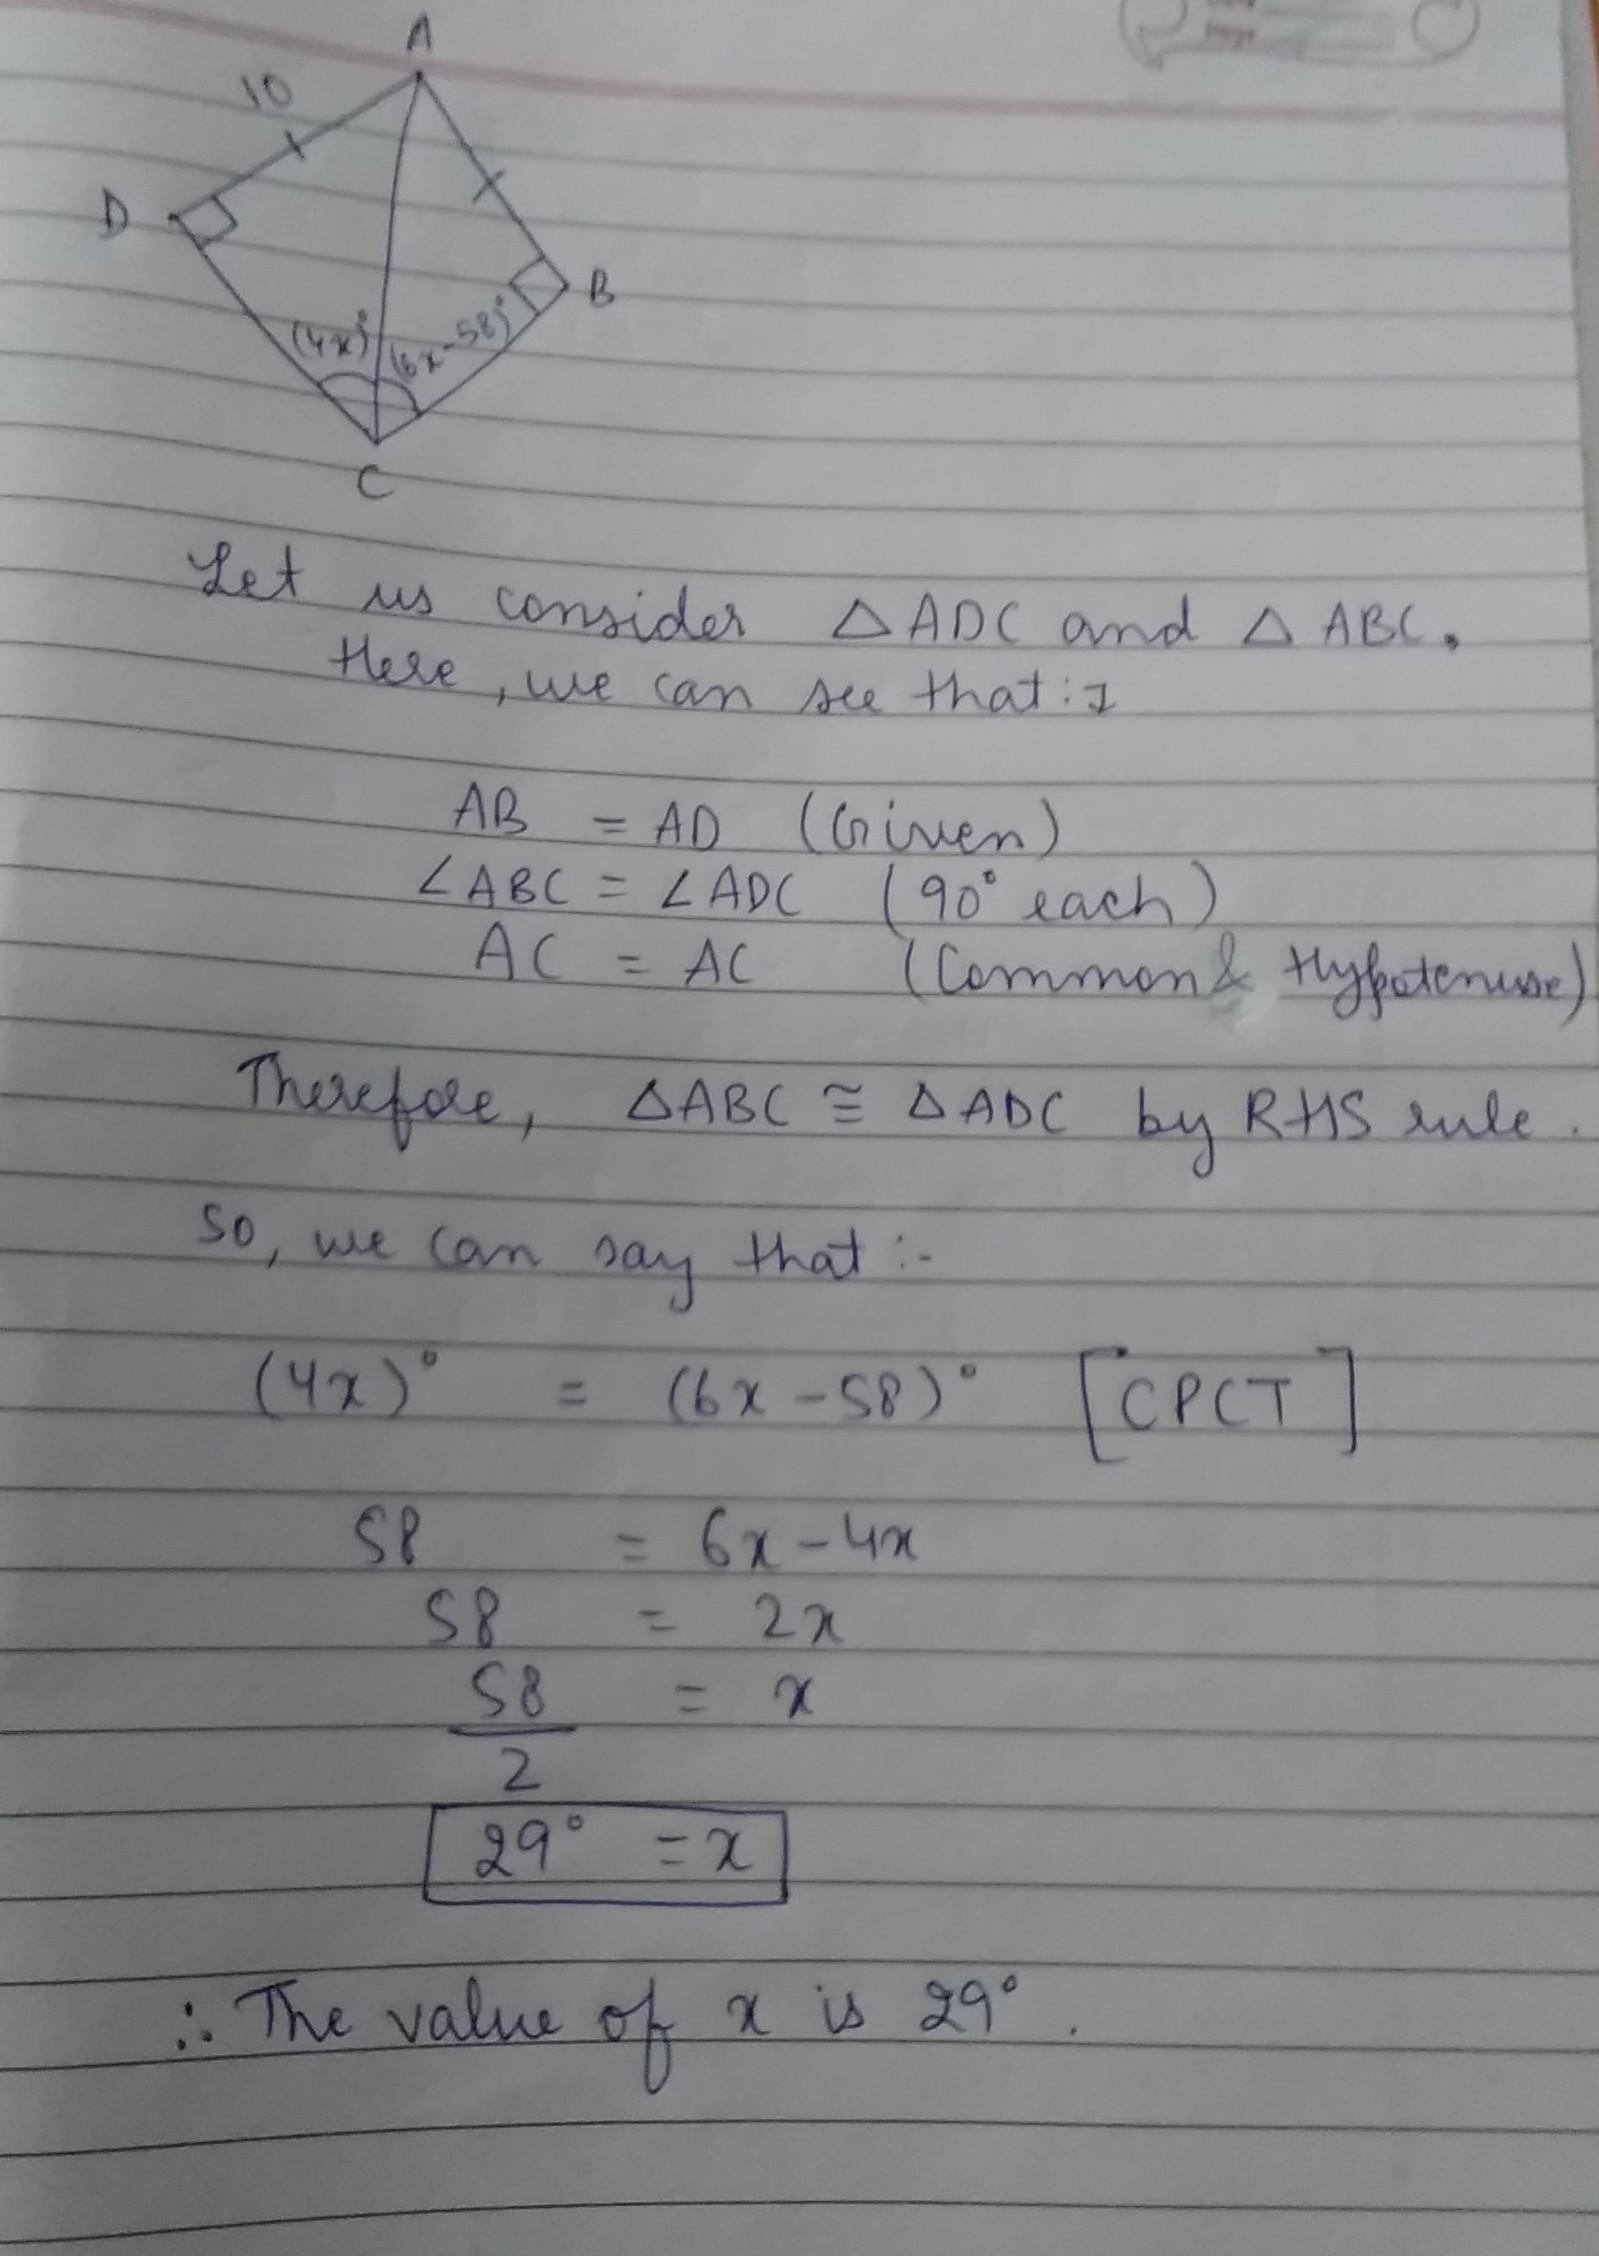 A
10
D
B
(4x)°
(6x-58)°
C
Let us consider △ADC and △ABC.
Here, we can see that :-
AB = AD (Given)
∠ABC = ∠ADC (90° each)
AC = AC (Common & Hypotenuse)
Therefore, △ABC ≅ △ADC by RHS rule.
So, we can say that :-
(4x)° = (6x-58)° [CPCT]
58 = 6x-4x
58 = 2x
58 = x
2
29° = x
∴ The value of x is 29°.